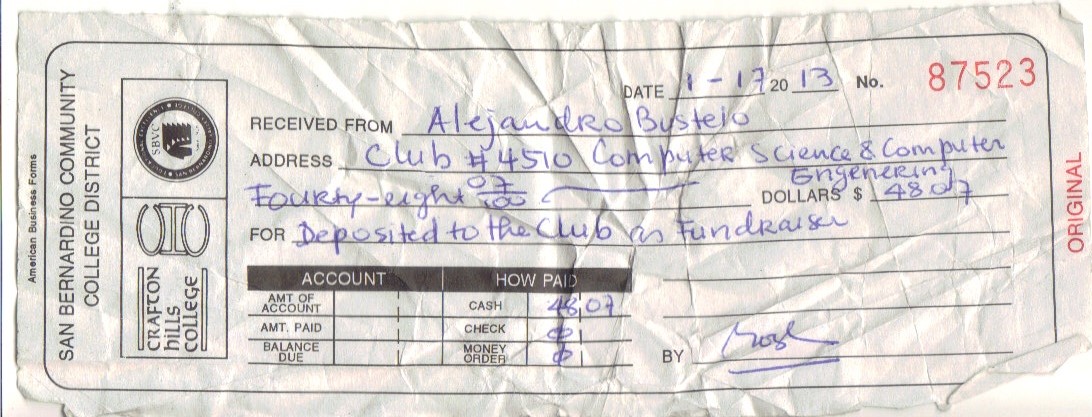 American Business Forms
SAN BERNARDINO COMMUNITY
COLLEGE DISTRICT
SBVC
CRAFTON
hills
COLLEGE
DATE 1-17 20 13 No. 87523
RECEIVED FROM Alejandro Bustelo
ADDRESS Club #4510 Computer Science & Computer
Engenering
Fourty-eight 07/100 DOLLARS $ 48 07
FOR Deposited to the Club as Fundraiser
ACCOUNT HOW PAID
AMT OF ACCOUNT CASH 48 07
AMT. PAID CHECK
BALANCE DUE MONEY ORDER
BY
ORIGINAL